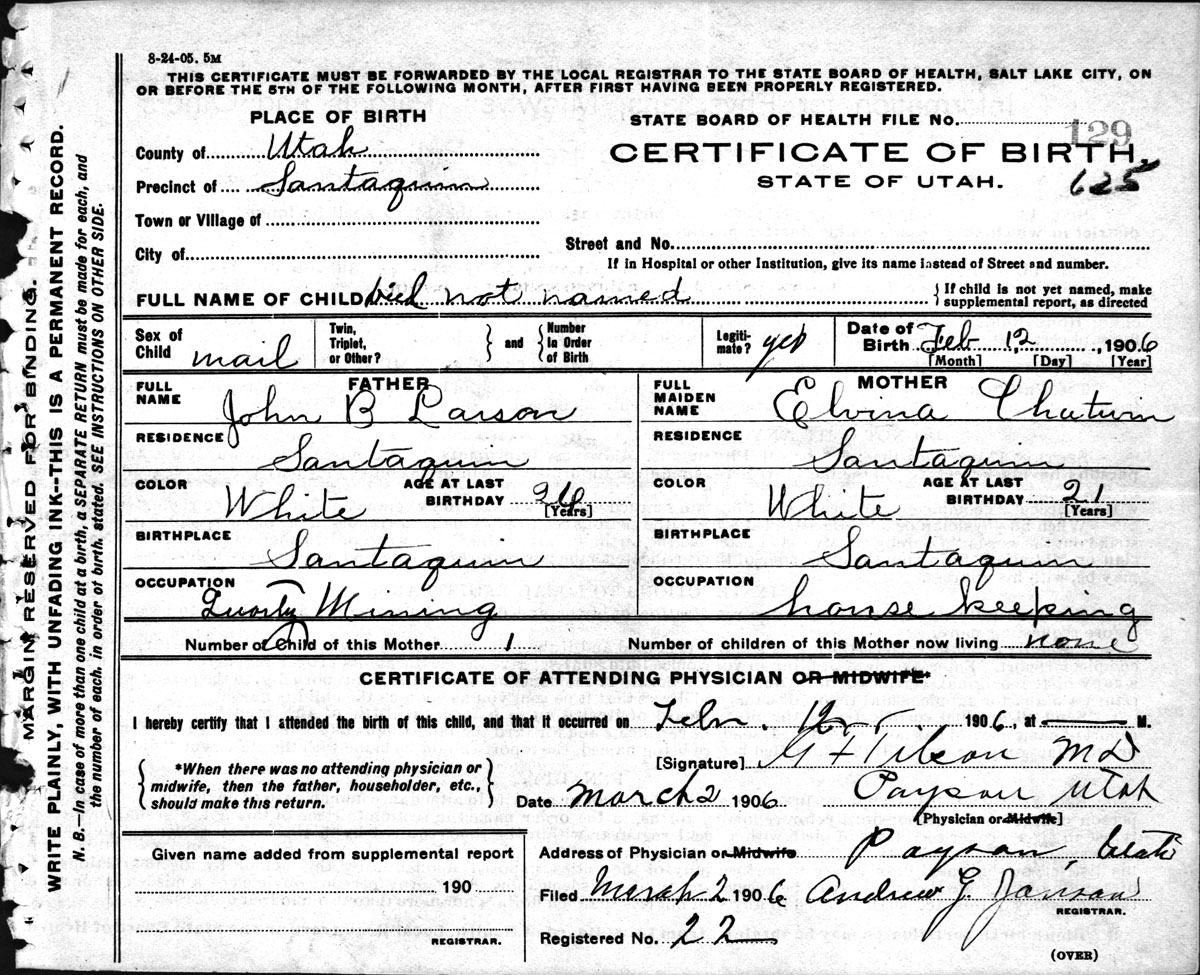 8-24-05. 5M
THIS CERTIFICATE MUST BE FORWARDED BY THE LOCAL REGISTRAR TO THE STATE BOARD OF HEALTH, SALT LAKE CITY, ON
OR BEFORE THE 5TH OF THE FOLLOWING MONTH, AFTER FIRST HAVING BEEN PROPERLY REGISTERED.
PLACE OF BIRTH
STATE BOARD OF HEALTH FILE No. 129
County of Utah
CERTIFICATE OF BIRTH.
Precinct of Santaquin
STATE OF UTAH.
625
Town or Village of
Street and No.
City of
If in Hospital or other Institution, give its name instead of Street and number.
FULL NAME OF CHILD died not named
{ If child is not yet named, make
supplemental report, as directed
Sex of Child mail
Twin, Triplet, or Other? } and { Number In Order of Birth
Legiti-mate? yes
Date of Birth Feb 12, 1906
[Month] [Day] [Year]
FATHER
FULL NAME John B Larson
MOTHER
FULL MAIDEN NAME Elvina Chatwin
RESIDENCE Santaquin
RESIDENCE Santaquin
COLOR White AGE AT LAST BIRTHDAY [Years]
COLOR White AGE AT LAST BIRTHDAY 21 [Years]
BIRTHPLACE Santaquin
BIRTHPLACE Santaquin
OCCUPATION Mining
OCCUPATION house keeping
Number of Child of this Mother 1
Number of children of this Mother now living none
CERTIFICATE OF ATTENDING PHYSICIAN OR MIDWIFE*
I hereby certify that I attended the birth of this child, and that it occurred on Feb. 12 1906, at M.
{ *When there was no attending physician or
midwife, then the father, householder, etc.,
should make this return. }
[Signature] MD
Date March 2 1906 Payson Utah
[Physician or Midwife]
Given name added from supplemental report
190
REGISTRAR.
Address of Physician or Midwife Payson, Utah
Filed March 2 1906 Andrew G.
REGISTRAR.
Registered No. 22
(OVER)
MARGIN RESERVED FOR BINDING.
WRITE PLAINLY, WITH UNFADING INK--THIS IS A PERMANENT RECORD.
N. B.—In case of more than one child at a birth, a SEPARATE RETURN must be made for each, and
the number of each, in order of birth, stated. SEE INSTRUCTIONS ON OTHER SIDE.